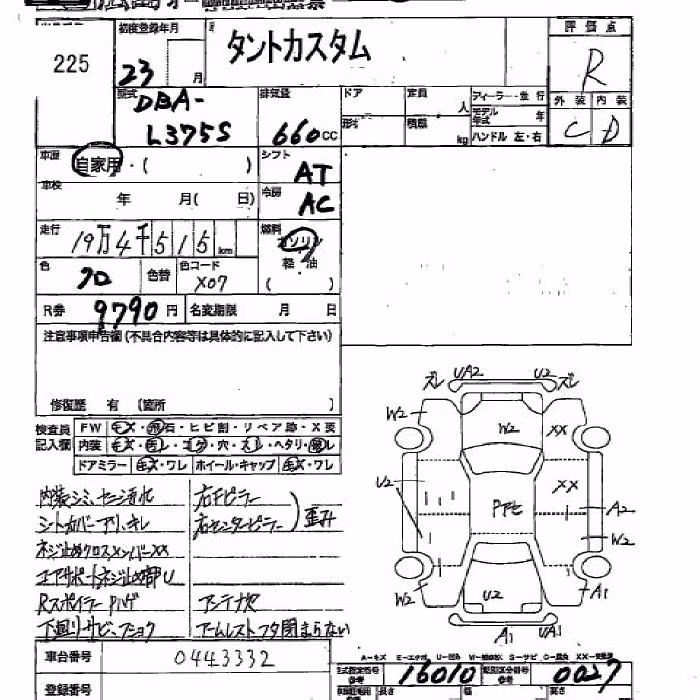 225
初度登録年月
23 月
タントカスタム
評価点
R
型式
DBA-
L375S
排気量
660 CC
ドア
定員
人
形状
積載
kg
ディーラー・並行
モデル年式 年
ハンドル 左・右
外装 内装
C D
車歴
自家用・( )
シフト
AT
車検
年 月( 日)
冷房
AC
走行
19万4千515 km
燃料
ガソリン
軽油
( )
色
クロ
色替
色コード
X07
R券 9790 円
名変期限 月 日
注意事項申告欄(不具合内容等は具体的に記入して下さい)
修復歴 有 (箇所 )
検査員
記入欄
FW キズ・飛石・ヒビ割・リペア跡・X要
内装 キズ・汚レ・コゲ・穴・スレ・ヘタリ・破レ
ドアミラー キズ・ワレ
ホイール・キャップ キズ・ワレ
シートカバーアリ、キレ
ネジ止めクロスメンバーXX
エアサポートネジ止め部U
Rスポイラー Pハゲ
下廻リサビ、フショク
右Fピラー
右センターピラー
歪み
アンテナ欠
アームレストフタ閉まらない
ズレ UA2 U2 ズレ
W2 W2 XX
U2 XX
Pテセ A2
W2
W2 U2 A1
A1 UA1
A-キズ E-エクボ U-凹み W-補修跡 S-サビ C-腐食 XX-交換済
車台番号 0443332
型式指定番号 参考 16010
類別区分番号 参考 0027
登録番号
長さ
幅
高さ